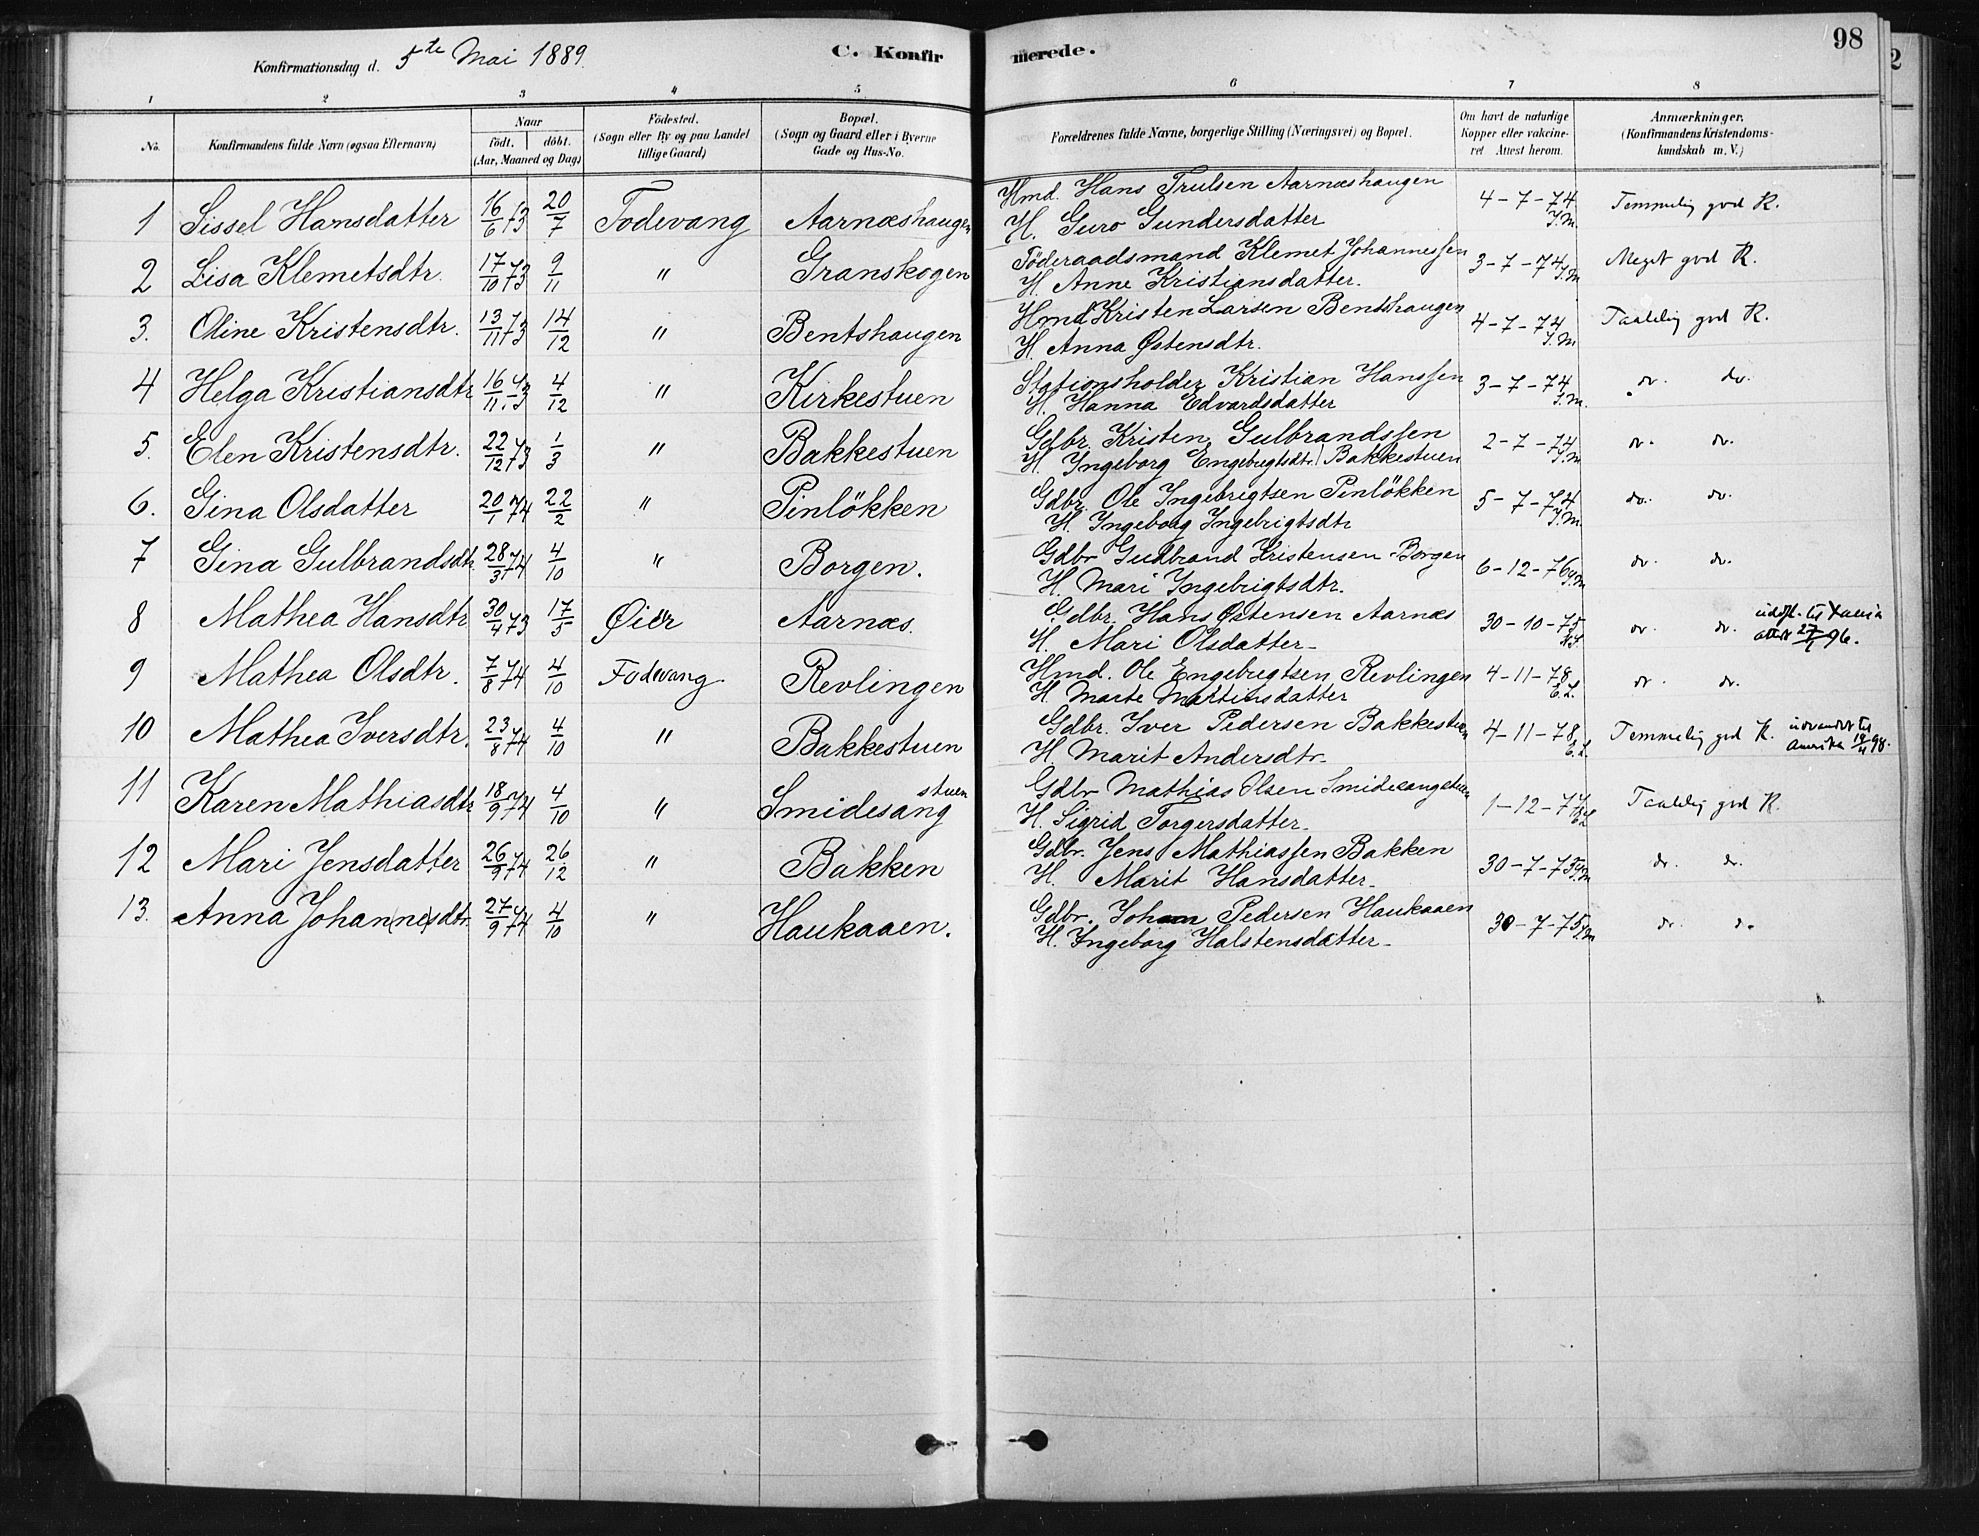 Konfirmationsdag d. 5te Mai 1889. C. Konfirmerede. 98
1 2 3 4 5 6 7 8
No. Konfirmandens fulde Navn (ogsaa Efternavn) Naar födt. döbt. (Aar, Maaned og Dag) Födested. (Sogn eller By og paa Landet tillige Gaard) Bopæl. (Sogn og Gaard eller i Byerne Gade og Hus-No. Forældrenes fulde Navne, borgerlige Stilling (Næringsvei) og Bopæl. Om havt de naturlige Kopper eller vakcineret Attest herom. Anmærkninger. (Konfirmandens Kristendomskundskab m. V.)
1 Sissel Hansdatter 16/6 73 20/7 Fodevang Aarnæshaugen Hmd. Hans Trulsen Aarnæshaugen 4-7-74 J.M. Temmelig god K.
H. Guro Gundersdatter
2 Lisa Klemetsdtr. 17/10 73 9/11 " Granskogen Föderaadsmand Klemet Johannessen 3-7-74 J.M. Meget god K.
H. Anne Kristiansdatter.
3. Oline Kristensdtr. 13/11 73 14/12 " Bentshaugen Hmd Kristen Larsen Bentshaugen 4-7-74 J.M. Taalelig god K.
H. Anna Østensdtr.
4 Helga Kristiansdtr 16/11 73 4/12 " Kirkestuen Stationsholder Kristian Hanssen 3-7-74 J.M. do. do.
H. Hanna Edvardsdatter
5. Elen Kristensdtr. 22/12 73 1/3 " Bakkestuen Gdbr. Kristen Gulbrandssen 2-7-74 J.M. do. do.
H. Ingeborg Engebrigtsdtr. Bakkestuen
6. Gina Olsdatter 20/1 74 22/2 " Pinlökken Gdbr. Ole Ingebrigtsen Pinlökken 5-7-74 J.M. do. do.
H. Ingeborg Ingebrigtsdtr
7 Gina Gulbrandsdtr. 28/3 74 4/10 " Borgen. Gdbr Gudbrand Kristensen Borgen 6-12-76 J.M do. do.
H. Mari Ingebrigtsdtr.
8 Mathea Hansdtr 30/4 73 17/5 Øier Aarnæs. Gdbr. Hans Østensen Aarnæs 30-10-75 do. do. udfl. til
H. Mari Olsdatter
9 Mathea Olsdtr. 7/8 74 4/10 Fodevang. Revlingen Hmd. Ole Engebrigtsen Revlingen 4-11-78 E.L. do. do.
H Marte Martinsdatter
10 Mathea Iversdtr. 23/8 74 4/10 " Bakkestuen Gdbr. Iver Pedersen Bakkestuen 4-11-78 E.L. Temmelig god K. udvandret til Amerika 98.
H. Marit Andersdtr
11 Karen Mathiasdtr 18/9 74 4/10 " Smidesangstuen Gdbr Mathias Olsen Smidesangstuen 1-12-77 E.L Taalelig god K.
H. Sigrid Torgersdatter
12 Mari Jensdatter 26/9 74 26/12 " Bakken Gdbr. Jens Mathiassen Bakken 30-7-75 J.M do. do.
H. Marit Hansdatter
13. Anna Johan(ne)sdtr. 27/9 74 4/10 " Haukaaen. Gdbr. Johan Pedersen Haukaaen 30-7-75 J.M do. do.
H. Ingeborg Halstensdatter